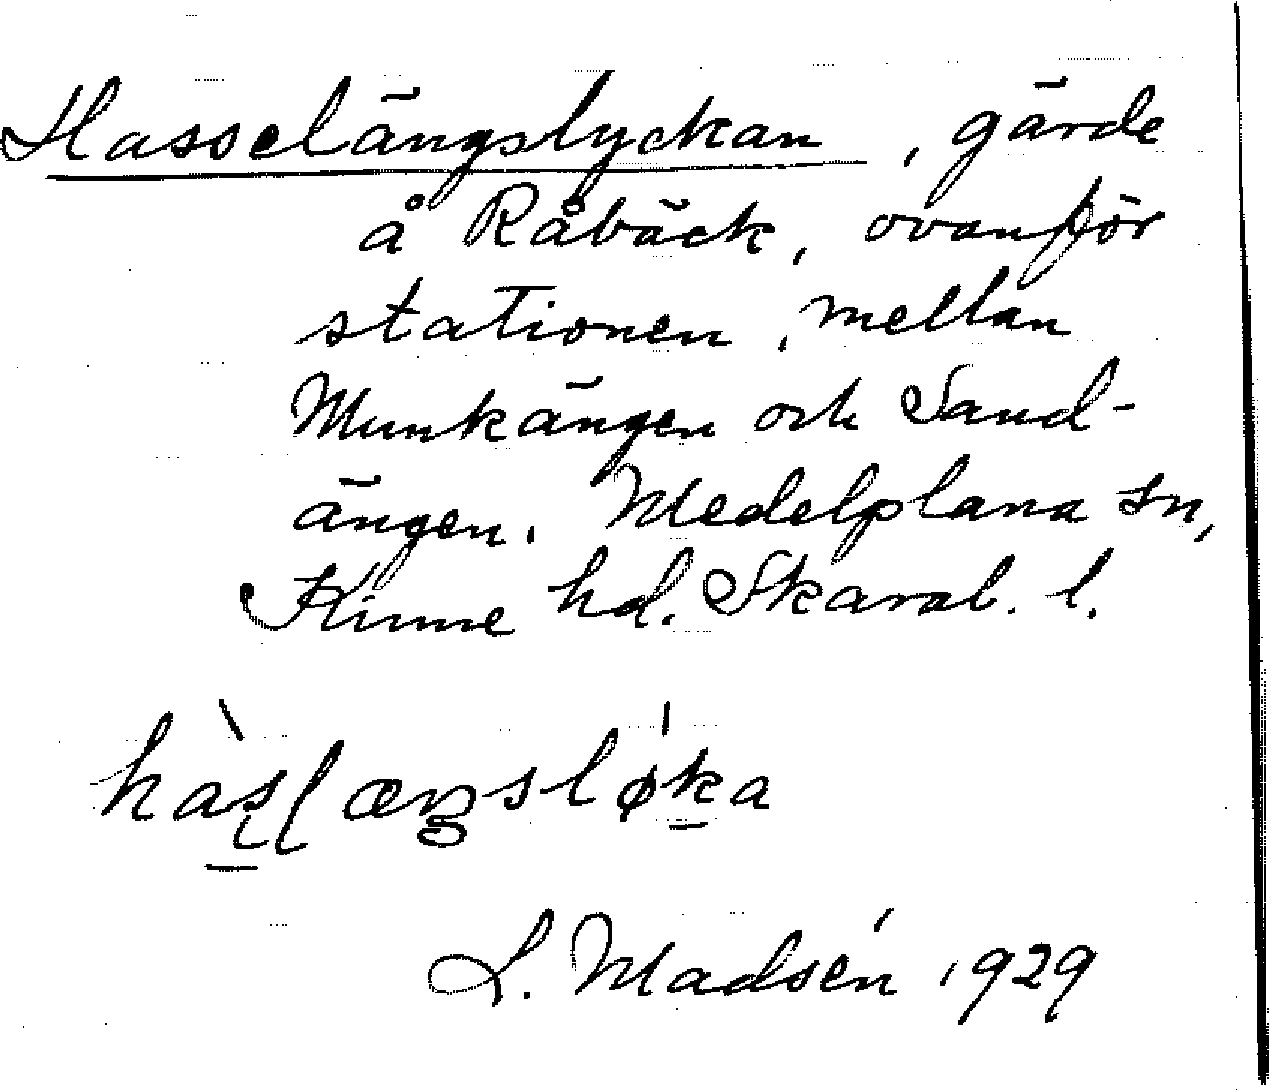 Hasselängslyckan, gärde
å Råbäck, ovanför
stationen, mellan
Munkängen och Sand-
ängen. Medelplana sn,
Kinne hd. Skarab. l.
L. Madsén 1929